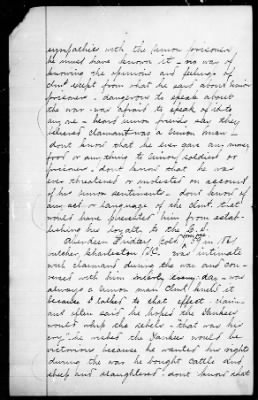 sympathies with the Union prisoners
he must have known it - no way of
knowing the opinions and feelings of
clmt except from what he said about Union
prisoners - dangerous to speak about
the war - was afraid to speak of it to
any one - heard Union friends say they
believed claimant was a Union man -
dont know that he ever gave any money
food or any thing to Union soldiers or
prisoners - dont know that he was
ever threatened or molested on account
of his Union sentiments - dont know of
any act or language of the clmt that
would have prevented him from estab-
lishing his loyalty to the C.S.
Aberdeen Lindsay 39 in 1861
butcher, Charleston S.C. was intimate
with claimant during the war and con-
versed with him every day - was
always a Union man clmt knew it
because I talked to that effect - claim-
ant often said he hoped the Yankees
would whip the rebels - "that was his
cry", he wished the Yankees would be
victorious because he wanted his rights
during the war he bought cattle and
sheep and slaughtered - dont know that